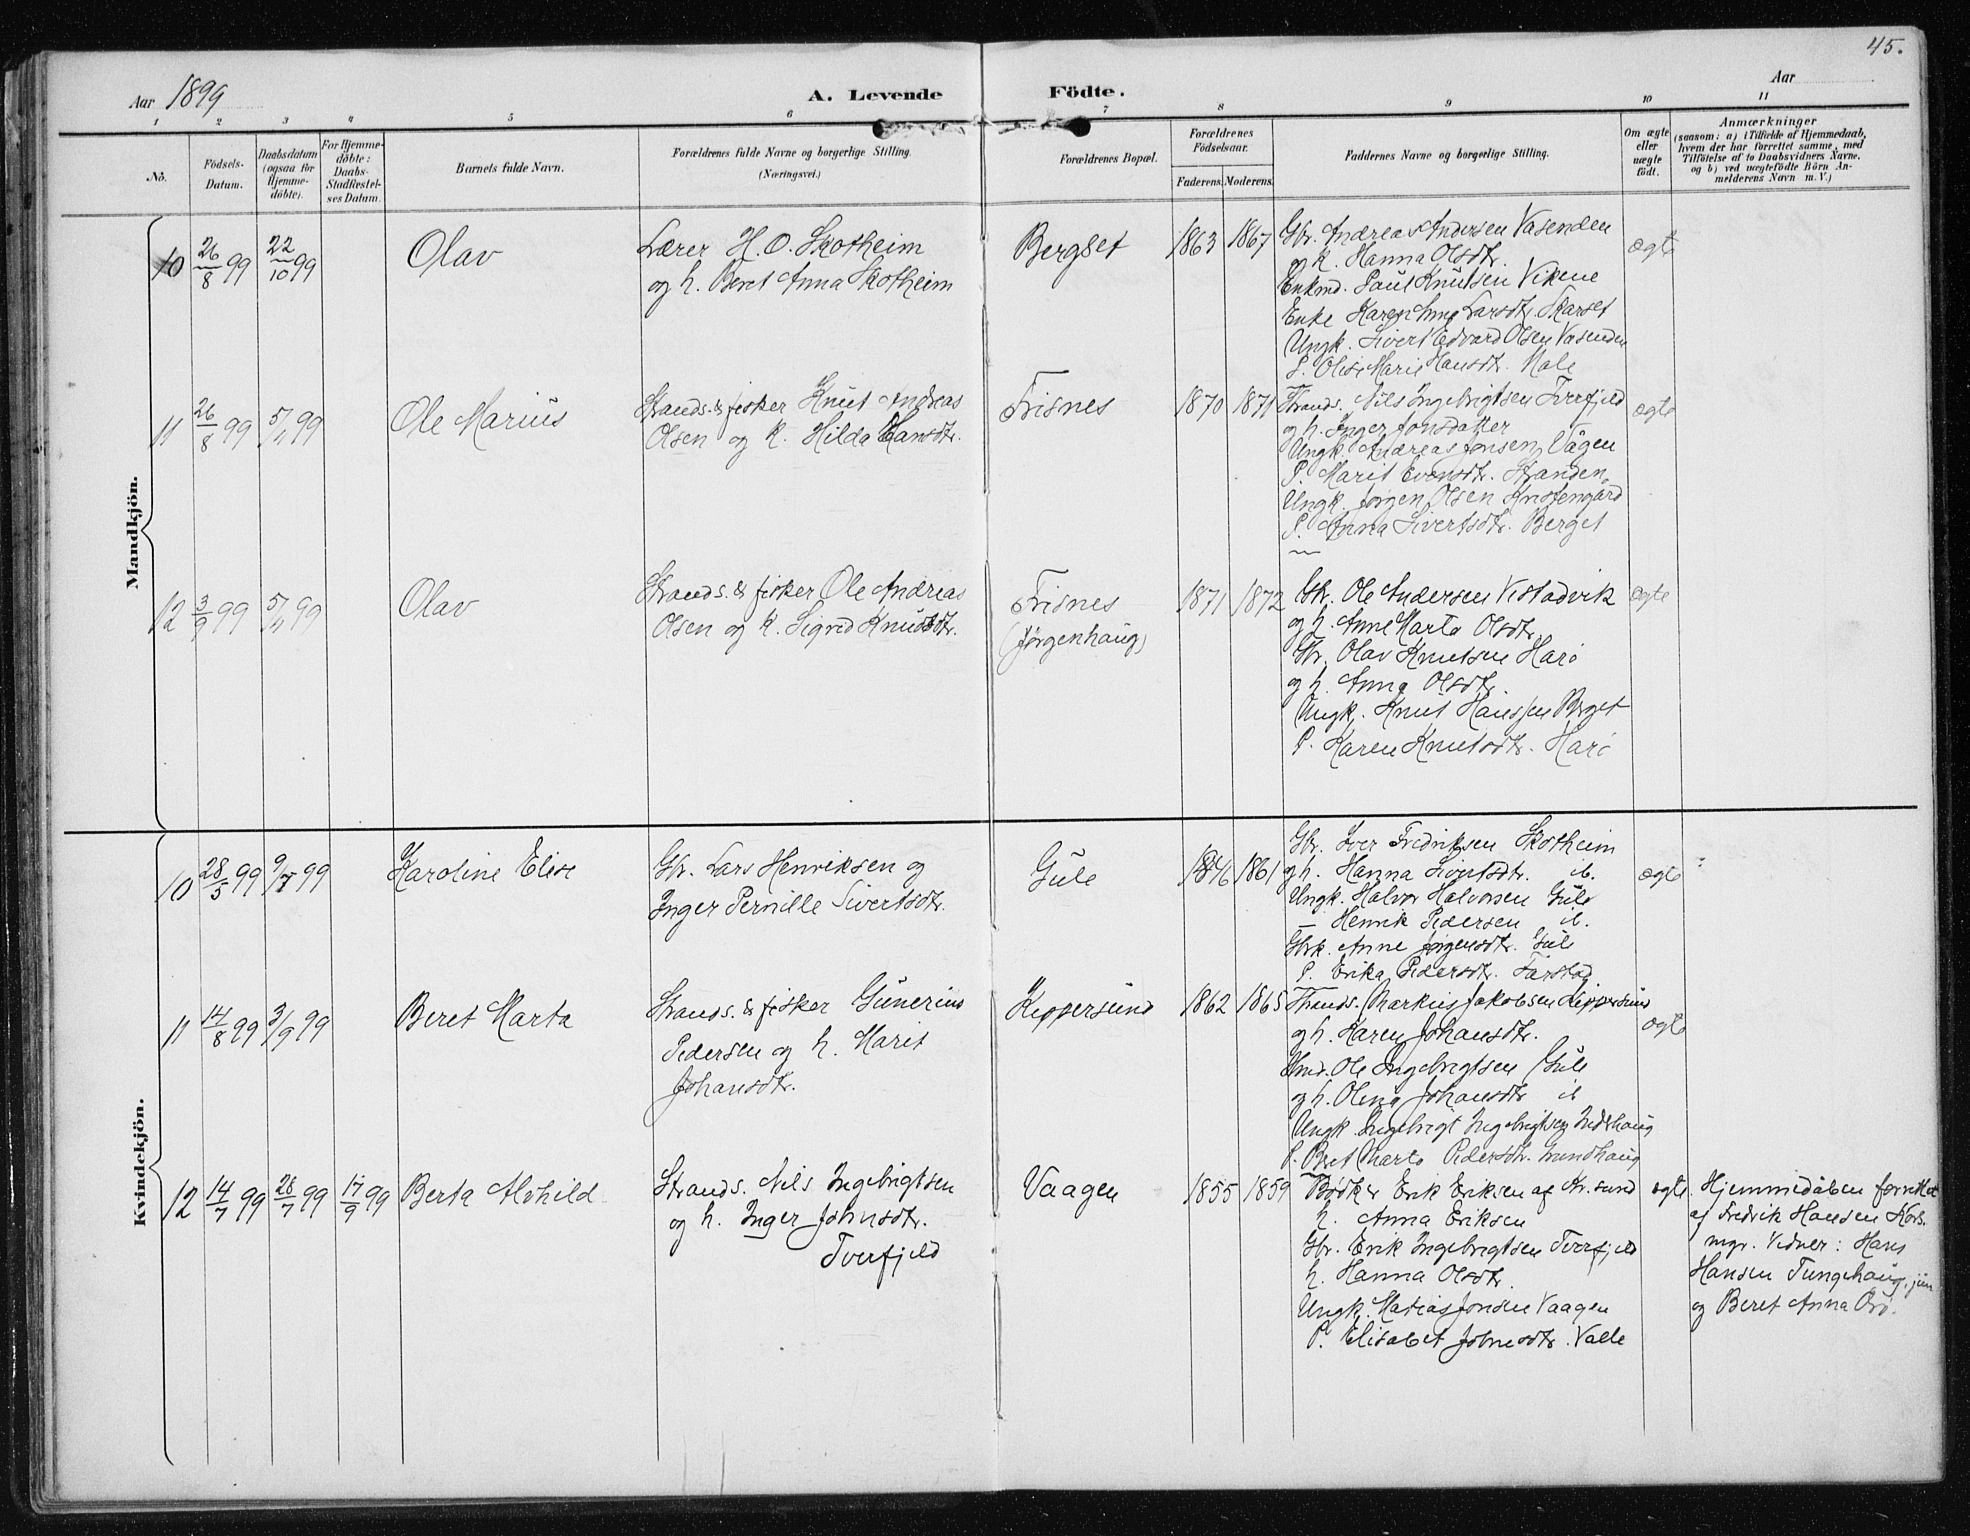 45.
Aar 1899
A. Levende Födte.
Aar
1 2 3 4 5 6 7 8 9 10 11
No.
Födsels-Datum.
Daabsdatum (ogsaa for Hjemme-döbte).
For Hjemme-döbte: Daabs-Stadfæstel-ses Datum.
Barnets fulde Navn.
Forældrenes fulde Navne og borgerlige Stilling.
(Næringsvei.)
Forældrenes Bopæl.
Forældrenes Födselsaar.
Faderens. Moderens.
Faddernes Navne og borgerlige Stilling.
Om ægte eller uægte födt.
Anmærkninger
(saasom: a) i Tilfælde af Hjemmedaab,
hvem der har forrettet samme, med
Tilföielse af to Daabsvidners Navne,
og b) ved uægtefödte Börn An-
melderens Navn m. V.)
Mandkjön.
10 26/8 99 22/10 99 Olav
Lærer H. O. Skotheim
og h. Beret Anna Skotheim
Bergset 1863 1867
Gbr. Andreas Andersen Vasenden
og k. Hanna Olsdtr.
Enkmd. Paul Knutsen Vikene
Enke Karen Anna Larsdtr. Skarset
Ungk. Sivert Edvard Olsen Vasenden
P. Olise Marie Hansdtr. Male
ægte
11 26/8 99 5/11 99 Ole Marius
Strands. & fisker Knut Andreas
Olsen og k. Hilda Hansdtr.
Frisnes 1870 1871
Strands. Nils Ingebrigtsen Tverfjeld
og h. Inger Jonsdatter
Ungk. Andreas Jonsen Vågen
P. Marit Evensdtr. Stranden
Ungk. Jørgen Olsen Kristengård
P. Anna Sivertsdtr. Berget
ægte
12 3/9 99 5/11 99 Olav
Strands. & fisker Ole Andreas
Olsen og k. Sigrid Knutsdtr.
Frisnes
(Jørgenhaug)
1871 1872
Gbr. Ole Andersen Vistadvik
og h. Anne Marta Olsdtr.
Gbr. Olav Knutsen Harø
og h. Anna Olsdtr.
Ungk. Knut Hanssen Berget
P. Karen Knutsdtr. Harø
ægte
Kvindekjön.
10 28/5 99 9/7 99 Karoline Elise
Gbr. Lars Henriksen og
Inger Pernille Sivertsdtr.
Gule 1846 1861
Gbr. Iver Fredriksen Skotheim
og h. Hanna Sivertsdtr. ib.
Ungk. Halvor Halvorsen Gule
— Henrik Pedersen ib.
Gbrk. Anne Jørgensdtr. Gule
P. Erika Pedersdtr. Farstad
ægte
11 14/8 99 3/9 99 Beret Marta
Strands. & fisker Gunerius
Pedersen og h. Marit
Johansdtr.
Keppersund 1862 1865
Strands. Markus Jakobsen Keppersund
og h. Karen Johansdtr.
Hmd. Ole Ingebrigtsen Gule
og h. Olena Johansdtr ib
Ungk. Ingebrigt Ingebrigtsen Indshaug
P. Beret Marta Pedersdtr. Sundhaug
ægte
12 14/7 99 28/7 99 17/9 99 Berta Alvhild
Strands. Nils Ingebrigtsen
og h. Inger Johnsdtr.
Tverfjeld
Vaagen 1855 1859
Bødker Erik Eriksen af Kr.sund
h. Anna Eriksen
Gbr. Erik Ingebrigtsen Tverfjeld
h. Hanna Olsdtr.
Ungk. Matias Jonsen Vaagen
P. Elisabet Johnesdtr. Valle
ægte.
Hjemmedåben forrettet
af Fredrik Hansen Kors-
mgr. Vidner: Hans
Hansen Tungehaug, jun
og Beret Anna Orø.